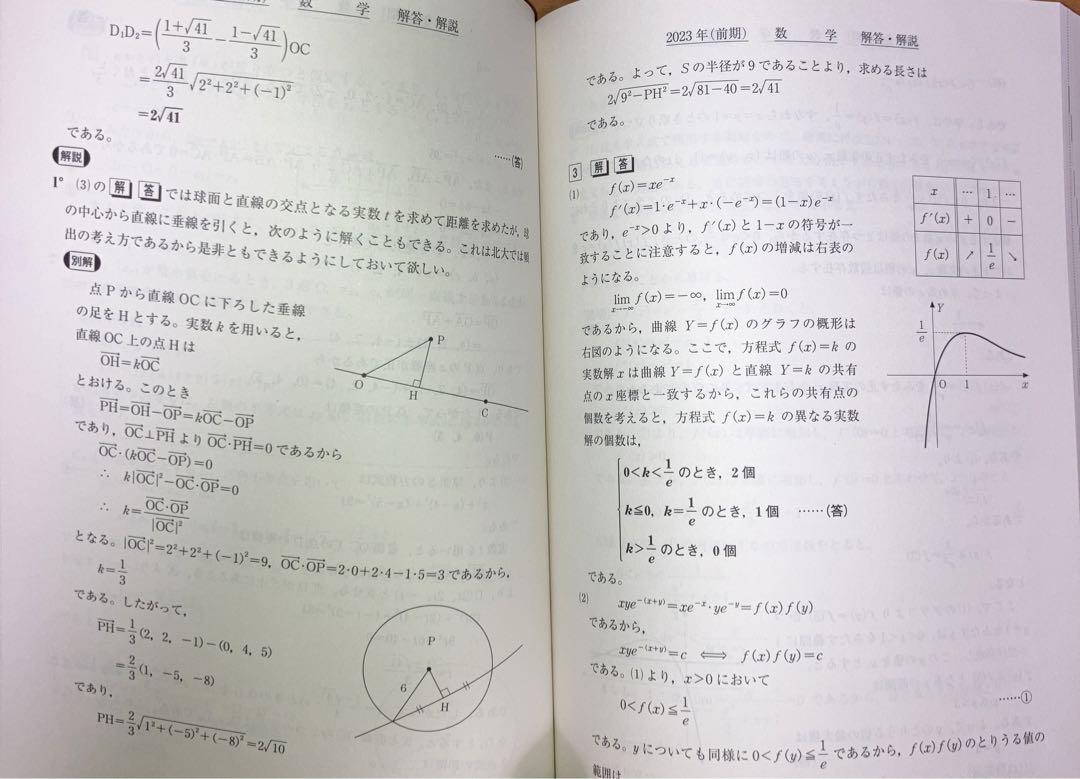 数 学 解答・解説
D₁D₂=((1+√41)/3−(1−√41)/3)OC
=(2√41)/3 √(2²+2²+(−1)²)
=2√41
である。 ……(答)
解説
1° (3)の 解 答 では球面と直線の交点となる実数 t を求めて距離を求めたが，球
の中心から直線に垂線を引くと，次のように解くこともできる。これは北大では頻
出の考え方であるから是非ともできるようにしておいて欲しい。
別解
点Pから直線OCに下ろした垂線
の足をHとする。実数 k を用いると，
直線OC上の点Hは
OH→=kOC→
とおける。このとき
PH→=OH→−OP→=kOC→−OP→
であり，OC→⊥PH→ より OC→・PH→=0 であるから
OC→・(kOC→−OP→)=0
∴ k|OC→|²−OC→・OP→=0
∴ k=(OC→・OP→)/|OC→|²
となる。|OC→|²=2²+2²+(−1)²=9，OC→・OP→=2・0+2・4−1・5=3 であるから，
k=1/3
である。したがって，
PH→=1/3(2, 2, −1)−(0, 4, 5)
=2/3(1, −5, −8)
であり，
PH=2/3√(1²+(−5)²+(−8)²)=2√10
P
O
H
C
P
6
H
2023年(前期) 数 学 解答・解説
である。よって，Sの半径が9であることより，求める長さは
2√(9²−PH²)=2√(81−40)=2√41
である。
3 解 答
(1) f(x)=xe^{−x}
f′(x)=1・e^{−x}+x・(−e^{−x})=(1−x)e^{−x}
であり，e^{−x}>0 より，f′(x) と 1−x の符号が一
致することに注意すると，f(x) の増減は右表の
ようになる。
x … 1 …
f′(x) + 0 −
f(x) ↗ 1/e ↘
lim_{x→−∞} f(x)=−∞，lim_{x→∞} f(x)=0
であるから，曲線 Y=f(x) のグラフの概形は
右図のようになる。ここで，方程式 f(x)=k の
実数解 x は曲線 Y=f(x) と直線 Y=k の共有
点の x 座標と一致するから，これらの共有点の
個数を考えると，方程式 f(x)=k の異なる実数
解の個数は，
Y
1/e
O
1
x
0<k<1/e のとき，2個
k≦0，k=1/e のとき，1個 ……(答)
k>1/e のとき，0個
である。
(2) xye^{−(x+y)}=xe^{−x}・ye^{−y}=f(x)f(y)
であるから，
xye^{−(x+y)}=c ⟺ f(x)f(y)=c
である。(1)より，x>0 において
0<f(x)≦1/e ……①
である。y についても同様に 0<f(y)≦1/e であるから，f(x)f(y) のとりうる値の
範囲は